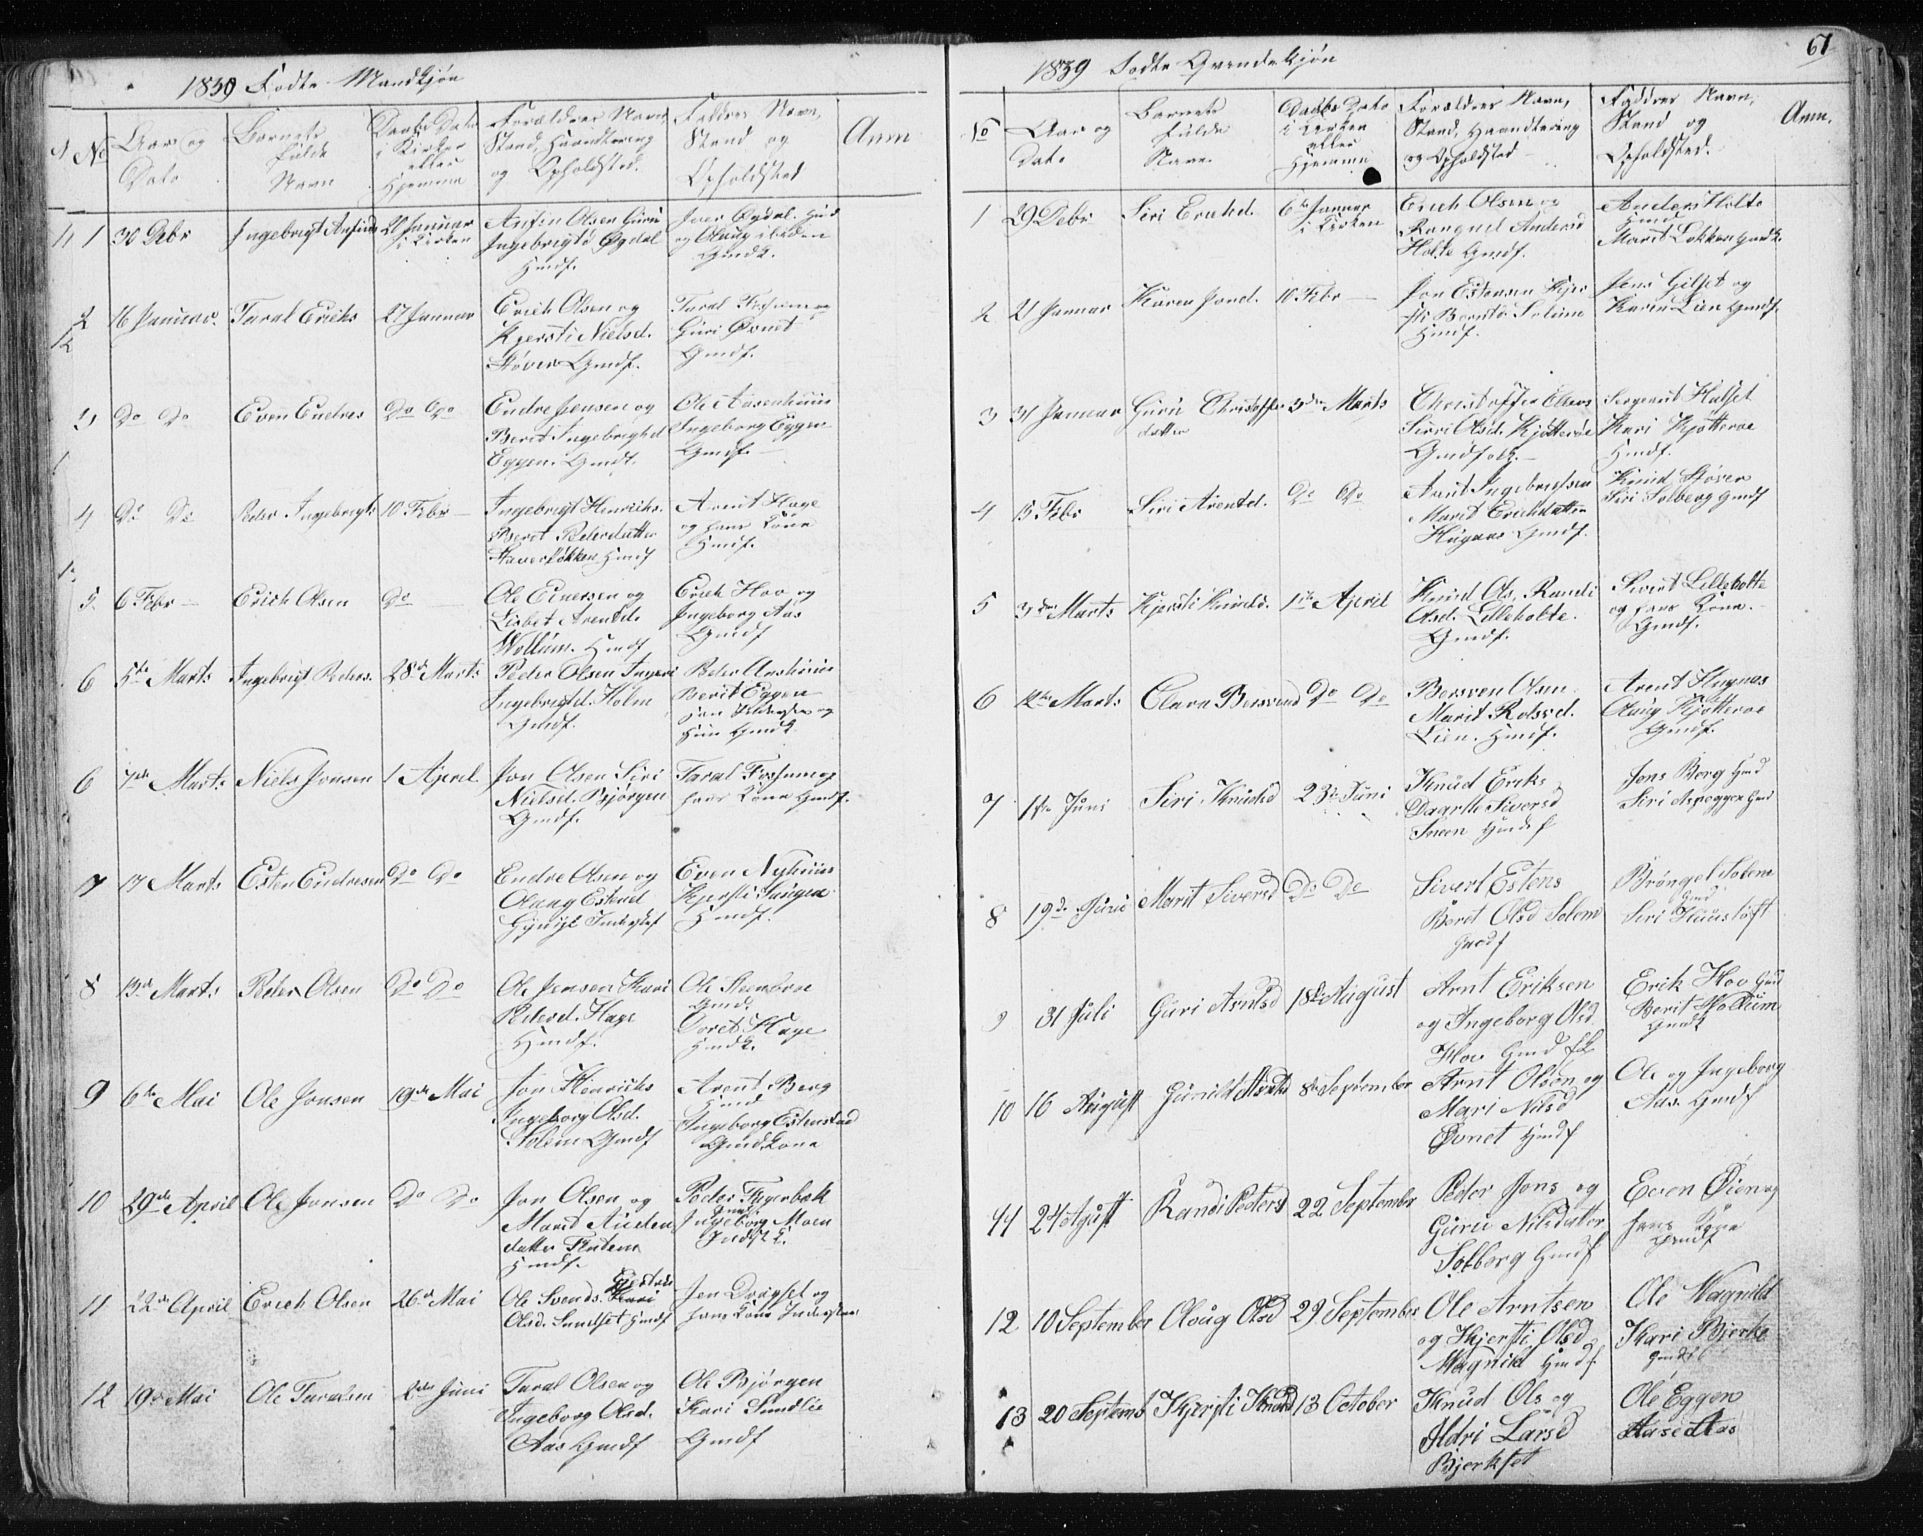 1839 Fødte Mandkjøn
No
Aar og Dato
Barnets fulde Navn
Daabs Dato i Kirken eller Hjemme
Forældres Navn, Stand, Haandtering og Opholdsted.
Faddres Navn, Stand og Opholdsted
Anm
1 30 Debr Ingebrigt Anfinds 20 Januar i Kirken
Anfin Olsen Guru Ingebrigtd Øydal Gmdf.
Iver Øydal. og Olaug ibiden Gmdk.
2 16 Januar. Taral Erichs 27 Januar
Erich Olsen og Kjersti Nielsd. Støver Gmdf.
Taral Fossum og Guri Øvnet Gmdf.
3 Do Do Even Endres Do Do
Endre Jensen og Berit Ingebrigtd Eggen. Gmdf.
Ole Aasenhuus Ingeborg Eggen Gmdf.
4 Do Do Peder Ingebrigts 10 Febr
Ingebrigt Henriks. Berit Pedersdatter Haverløkken Hmdf
Arent Hage og hans Kone Hmdf.
5. 6 Febr Erich Olsen Do
Ole Einersen og Lisbet Arentd. Wollum. Hmdf
Erich Hov og Ingeborg Aas Gmdf
6 5te Marts Ingebrigt Peders. 28de Marts
Peder Olsen Ingeri Ingebrigtd. Holm Gmdf.
Peder Aashuus Berit Eggen
6 7de Marts Niels Jonsen 1 April
Jon Olsen Siri Nielsd. Bjørgen Gmdf.
Taral Fossum og hans Kone Gmdf.
7 17 Marts Esten Endresen Do Do
Endre Olsen og Olaug Estend
Even Nyhuus Kjersti Haugen Hmdf.
8 13de Marts Peder Olsen Do Do
Ole Jensen Kari Pedersd. Hage Hmdf.
Ole Steenbroe Gmd. Dorit Hage Gmdk.
9 6te Mai Ole Jonsen 19de Mai
Jon Henrichs Ingeborg Olsd. Solem Gmdf
Arent Berg Hmd Ingeborg Estenstad Gmdkone
10 29de April Ole Jonsen Do Do
Jon Olsen og Marit Anders datter Flatem Hmdf.
Peder Fagerbak Ingeborg Moen
11 22de April Erich Olsen 26de Mai
Ole Svends. Olsd. Sundset Hmdf
Jon Drøyset og hans Kone
12 19de Mai Ole Taralsen 2den Juni
Taral Olsen og Ingeborg Olsd. Aas Gmdf
Ole Bjørgen Kari Sundlie Gmdf
1839 Fødte Qvindekjøn
61
No
Aar og Dato
Barnets fulde Navn.
Daabs Dato i Kirken eller Hjemme
Forældres Navn, Stand, Haandtering og Opholdsted
Faddres Navn, Stand og Opholdsted.
Anm.
1 29 Debr Siri Erichd. 6te Januar i Kirken
Erich Olsen og Rangnil Andersd Holte Gmdf.
Anders Holte Hmd Marit Løkken Gmdk.
2 21 Januar Karen Jonsd. 10 Febr
Jon Estensen Kjersti Berntsd. Solum Hmdf.
Jens Gilset og Karen Lien Gmdf.
3 31 Januar Guru Christoffers datter 3die Marts
Christoffer Siri Olsd. Kjøtterøe Gmdfolk.
Sergeant Halset Kari Kjøtterøe Hmdf.
4 15 Febr Siri Arentd. Do Do
Arnt Ingebrigtsen Marit Erichdatter Hugaas Gmdf.
Knud Støver Siri Solberg Gmdf
5 3die Marts Kjersti Knudsd. 1ste April
Knud Ols, Randi Olsd. Lilleholte. Gmdf.
Sivert Lilleholte og hans Kone. Gmdf.
6 12te Marts Clara Bersvend Do Do
Bersven Olsen Marit Rolsvd. Lien. Hmdf.
Arent Hugaas Olaug Kjøtterøe Gmdf.
7 1ste Juni Siri Knudsd 23de Juni
Knud Eriks Daarthe Siversd Sneen Hmdf
Jens Berg Hmd Siri Aspeggen Gmd
8 19de Juni Marit Siversd Do Do
Sivert Estens Beret Olsd Solem Gmdf
Brøngel Solem Gmd Siri Huusløft
9 31 Juli Guri Arntsd 18de August
Arnt Eriksen og Ingeborg Olsd Hov Gmdflk
Erik Hov Gmd Berit Wollum Gmdk
10 16 August Gunild Arntsd 8de September
Arnt Olsen og Mari Nilsd Øvnet Hmdf
Ole og Ingeborg Aas Gmdf
11 24 Agust Randi Peders 22 September
Peder Jons og Guru Nilsdatter Solberg Gmdf
Even Øien og hans Kone Gmdf
12 10 September Oloug Olsd 29 September
Ole Arntsen og Kjersti Olsd Wagnild Hmdf
Ole Wagnild Kari Bjerke Gmdf
13 20 Septemb Kjersti Knudsd 13 October
Knud Ols og Ildri Larsd Bjerkset
Ole Eggen Aase Aas